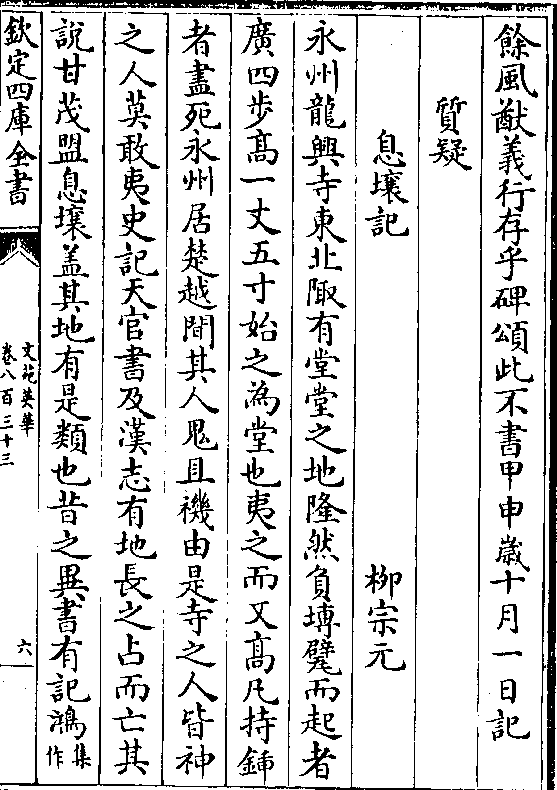 餘風猷義行存乎碑頌此不書甲申歲十月一日記
質疑
息壤記　柳宗元
永州龍興寺東北陬有堂堂之地隆然負塼甓而起者
廣四步高一丈五寸始之為堂也夷之而又高凡持鍤
者盡死永州居楚越間其人鬼且禨由是寺之人皆神
之人莫敢夷史記天官書及漢志有地長之占而亡其
說甘茂盟息壤盖其地有是類也昔之異書有記鴻集作
欽定四庫全書
文苑英華
卷八百三十三
六